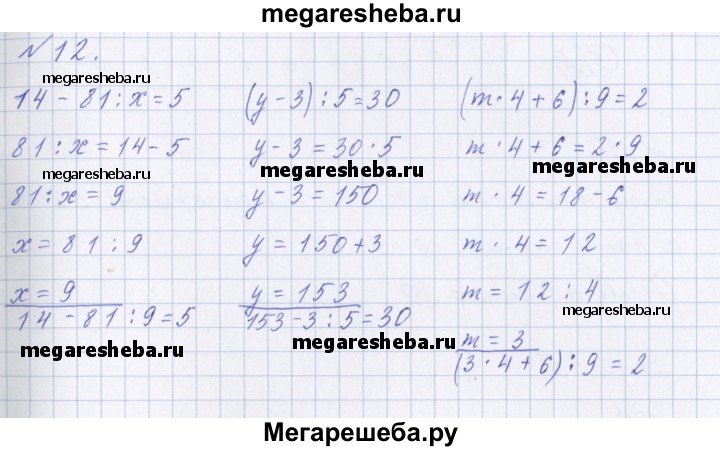 megaresheba.ru
№12.
megaresheba.ru
14 - 81 : x = 5
81 : x = 14 - 5
megaresheba.ru
81 : x = 9
x = 81 : 9
x = 9
14 - 81 : 9 = 5
megaresheba.ru
(y - 3) : 5 = 30
y - 3 = 30 · 5
megaresheba.ru
y - 3 = 150
y = 150 + 3
y = 153
153 - 3 : 5 = 30
megaresheba.ru
(m · 4 + 6) : 9 = 2
m · 4 + 6 = 2 · 9
megaresheba.ru
m · 4 = 18 - 6
m · 4 = 12
m = 12 : 4
megaresheba.ru
m = 3
(3 · 4 + 6) : 9 = 2
Мегарешеба.ру